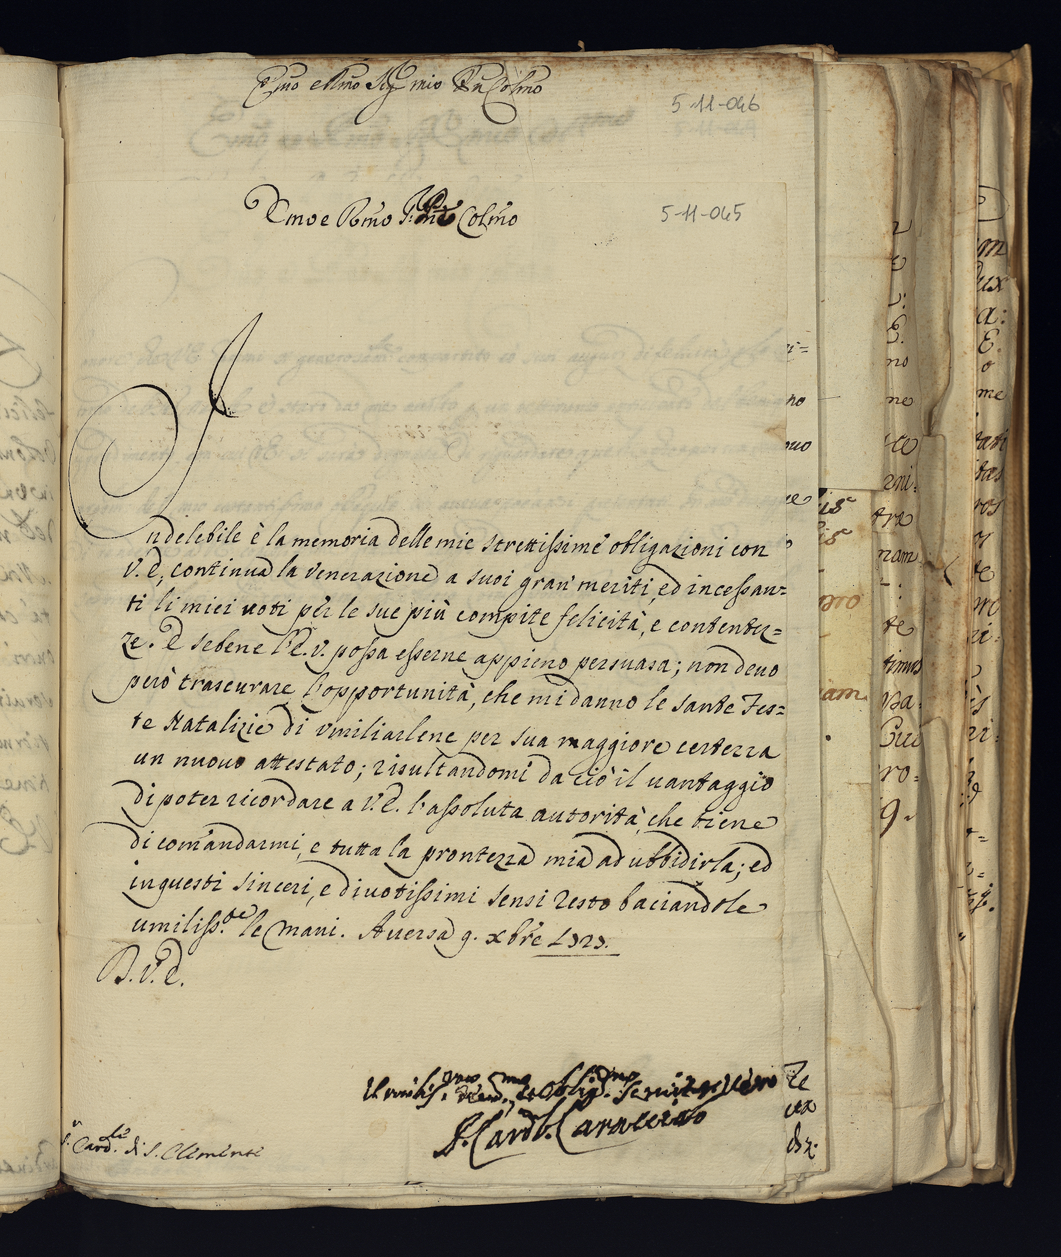 Emo e Rmo Sig mio Pn Colmo
5-11-046
Emo e Rmo Colmo
5-11-045
Indelebile è la memoria delle mie strettissime obligazioni con
V.E., continua la venerazione a suoi gran' meriti, ed incessan=
ti li miei voti per le sue più compite felicità, e contentez=
ze. E sebene l'E.V. possa esserne appieno persuasa; non devo
però trascurare l'opportunità, che mi danno le sante Fes=
te Natalizie di umiliarlene per sua maggiore certezza
un nuovo attestato; risultandomi da ciò il vantaggio
di poter ricordare a V.E. l'assoluta autorità, che tiene
di comandarmi, e tutta la prontezza mia ad ubbidirla; ed
in questi sinceri, e divotissimi sensi resto baciandole
umiliss.te le mani. Aversa 9. xbre 1727.
D.V.E.
Umilis.mo Obblig.mo Servitor vero
I. Card. Caracciolo
S.r Card.le di S. Clemente